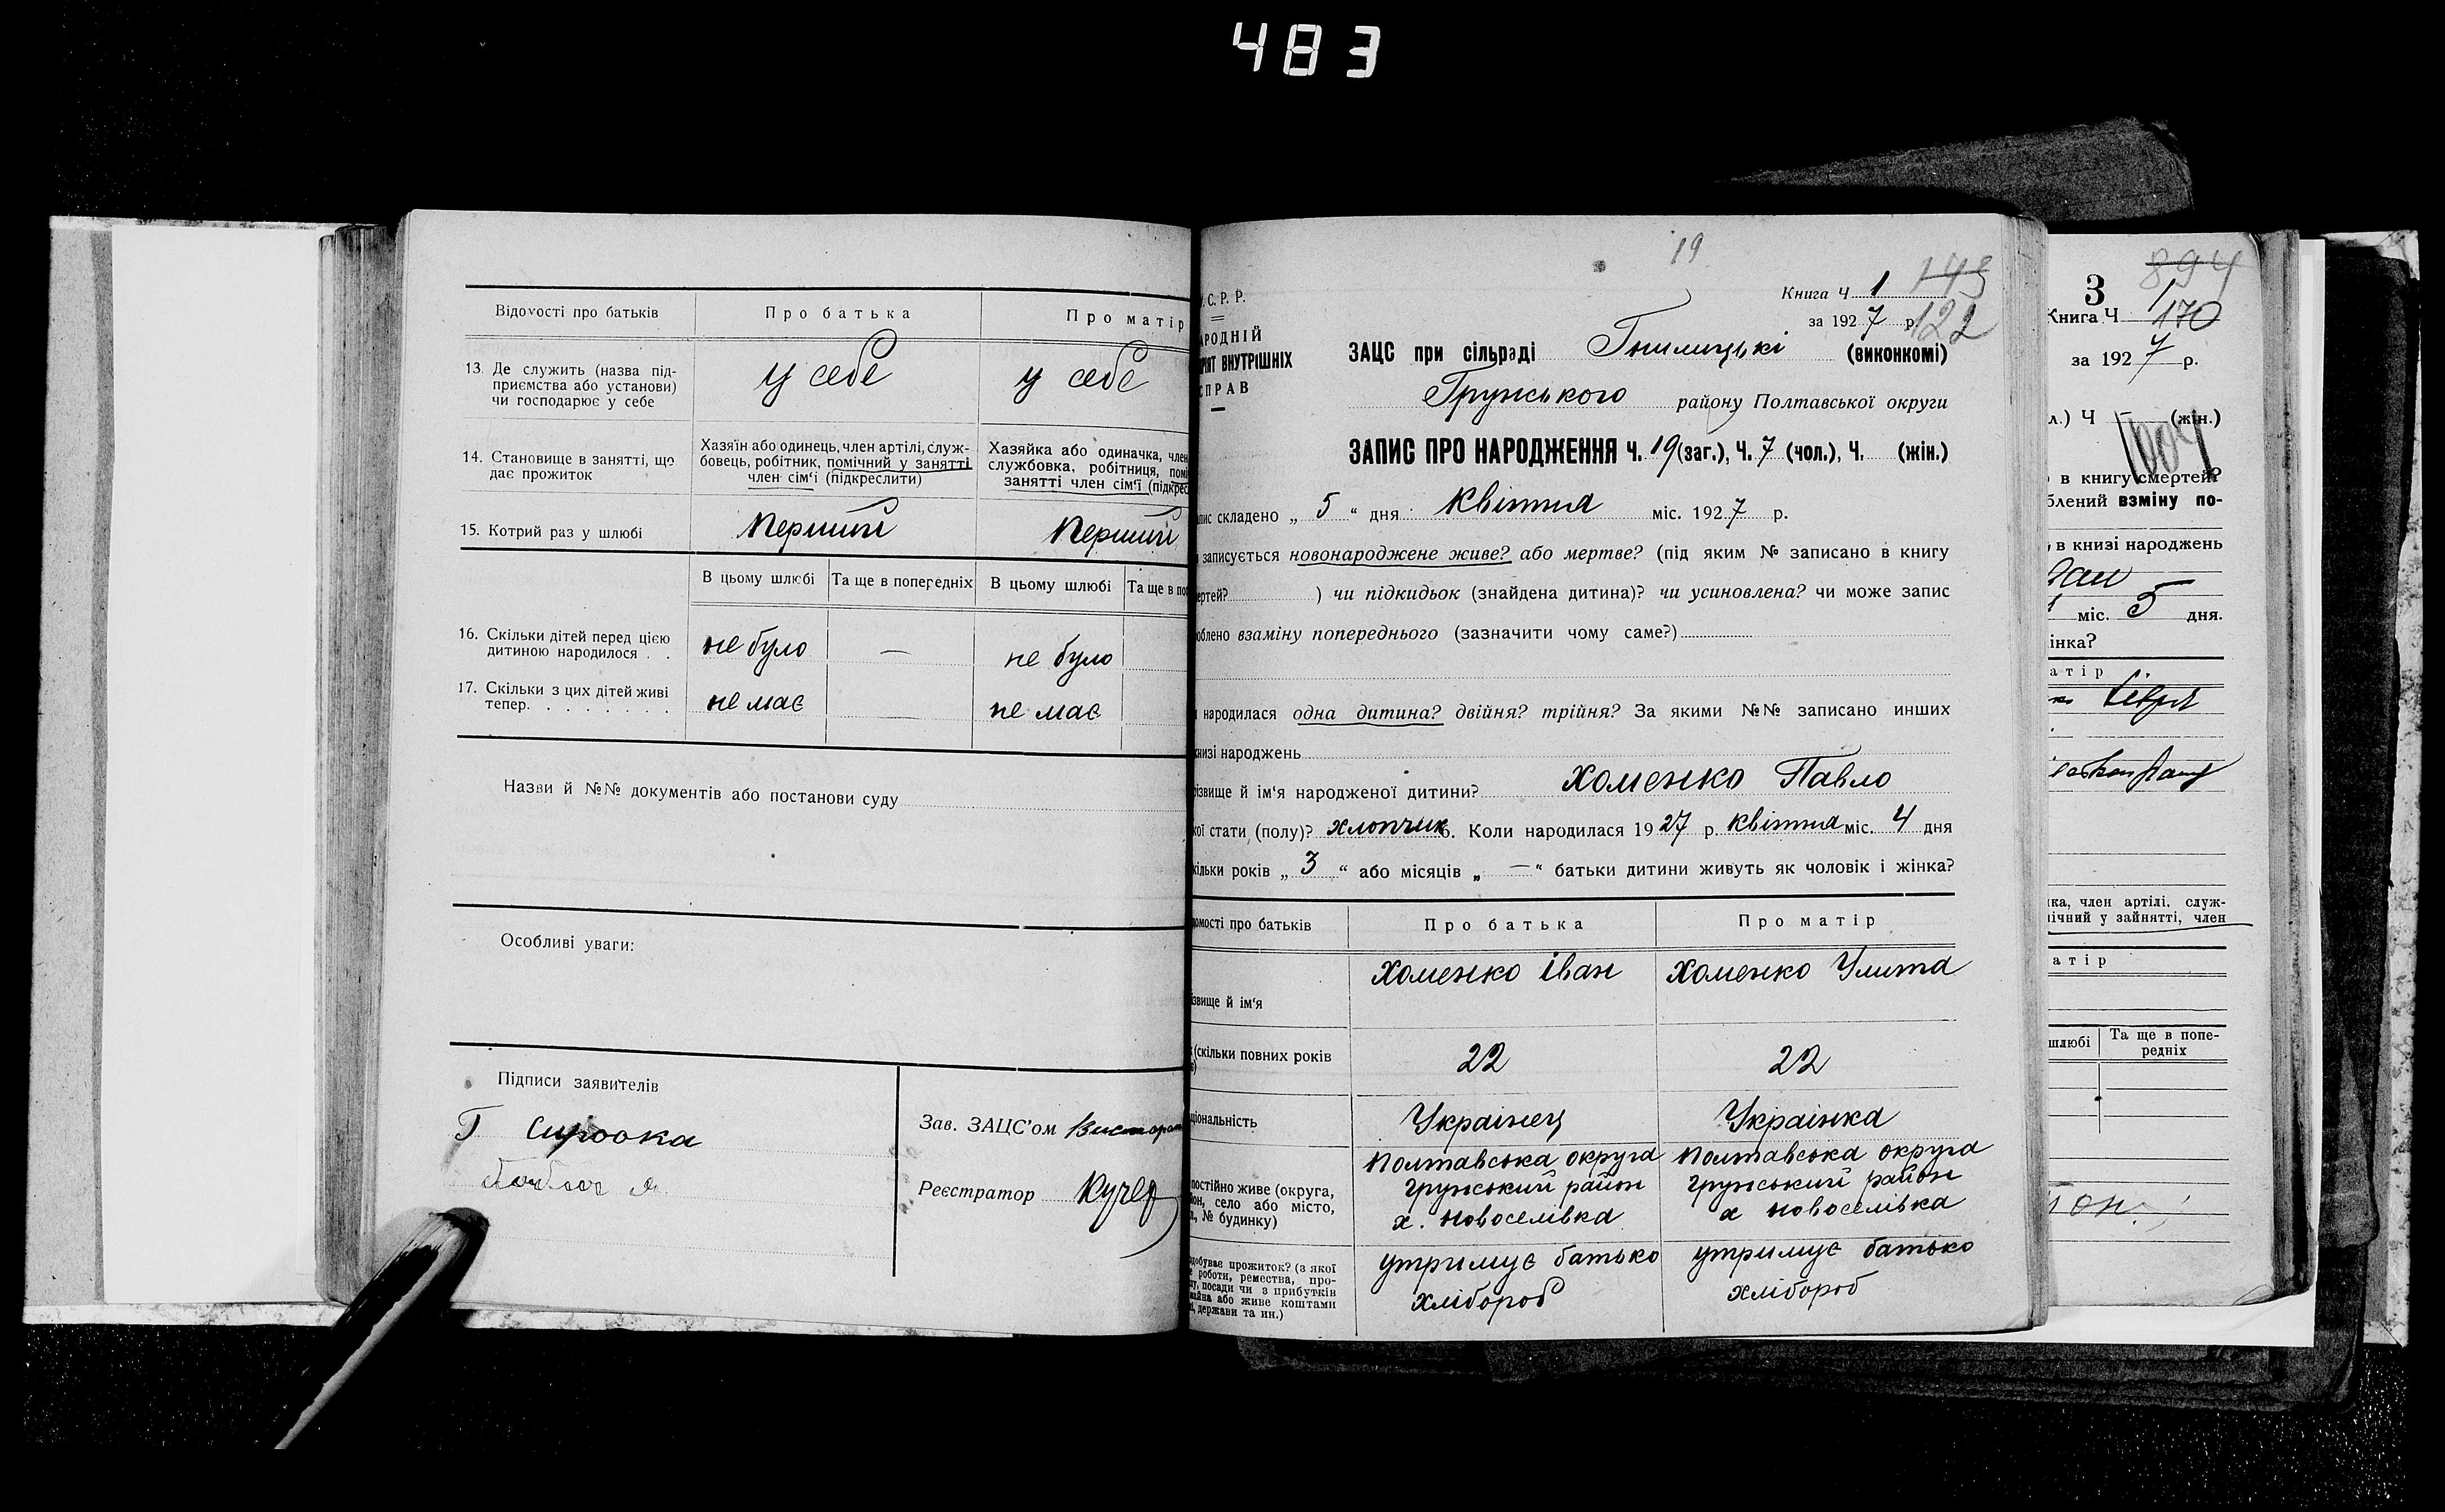 483
Відомості про батьків
Про батька
Про матір
13. Де служить (назва під-
приємства або установи)
чи господарює у себе
у себе
у себе
14. Становище в занятті, що
дає прожиток
Хазяїн або одинець, член артілі, служ-
бовець, робітник, помічний у занятті
член сім'ї (підкреслити)
Хазяйка або одиначка, член
службовка, робітниця, помі
занятті член сім'ї (підкрес
15. Котрий раз у шлюбі
Перший
Перший
В цьому шлюбі
Та ще в попередніх
В цьому шлюбі
Та ще в поп
16. Скільки дітей перед цією
дитиною народилося . .
не було
—
не було
17. Скільки з цих дітей живі
тепер. . . . . . . .
не має
не має
Назви й №№ документів або постанови суду
Особливі уваги:
Підписи заявителів
Г Сироока
Зав. ЗАЦС'ом
Реєстратор Кучер
19
С. Р. Р.
АРОДНІЙ
РІЯТ ВНУТРІШНІХ
СПРАВ
Книга Ч 1 143
за 1927 р. 122
ЗАЦС при сільраді Гнилицькі (виконкомі)
Грунського району Полтавської округи
ЗАПИС ПРО НАРОДЖЕННЯ Ч. 19 (заг.), Ч. 7 (чол.), Ч. (жін.)
пис складено „ 5 “ дня Квітня міс. 1927 р.
записується новонароджене живе? або мертве? (під яким № записано в книгу
ертей? ) чи підкидьок (знайдена дитина)? чи усиновлена? чи може запис
облено взаміну попереднього (зазначити чому саме?)
народилася одна дитина? двійня? трійня? За якими №№ записано инших
низі народжень
різвище й ім'я народженої дитини? Хоменко Павло
кої стати (полу)? хлопчик. Коли народилася 1927 р. квітня міс. 4 дня
кільки років „ 3 “ або місяців „ — “ батьки дитини живуть як чоловік і жінка?
домості про батьків
Про батька
Про матір
ізвище й ім'я
Хоменко Іван
Хоменко Улита
(скільки повних років
22
22
ціональність
Українец
Українка
постійно живе (округа,
йон, село або місто,
, № будинку)
Полтавська округа
Грунський район
х. Новоселівка
Полтавська округа
Грунський район
х Новоселівка
здобуває прожиток? (з якої
роботи, ремества, про-
у, посади чи з прибутків
майна або живе коштами
, держави та ин.)
утримує батько
хлібороб
утримує батько
хлібороб
3 894
Книга Ч 1
170
за 1927 р.
л.) Ч — (жін.)
в книгу смертей?
блений взміну по-
, в книзі народжень
міс. 5 дня.
інка?
атір
ка, член артілі, служ-
ічний у зайнятті, член
атір
шлюбі
Та ще в попе-
редніх